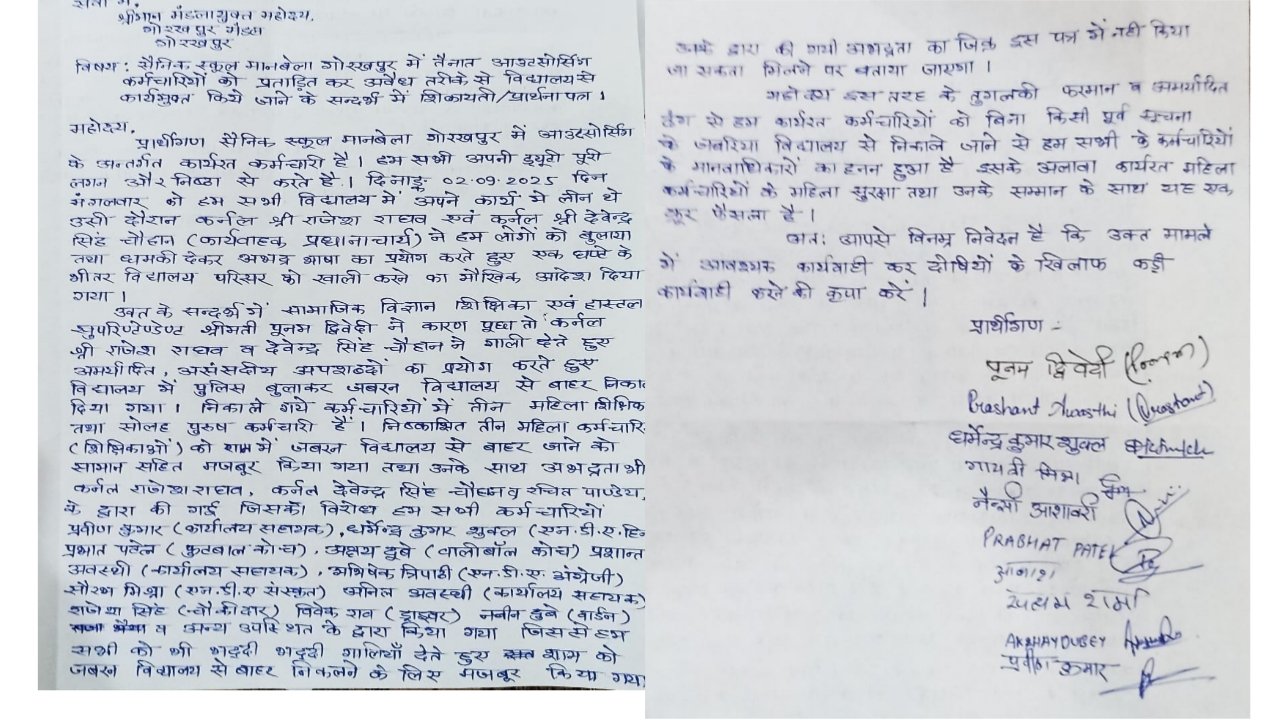 सेवा में,
श्रीमान मंडलायुक्त महोदय,
गोरखपुर मंडल
गोरखपुर
विषय: सैनिक स्कूल मानबेला गोरखपुर में तैनात आउटसोर्सिंग
कर्मचारियों को प्रताड़ित कर अवैध तरीके से विद्यालय से
कार्यमुक्त किये जाने के सन्दर्भ में शिकायती/प्रार्थना पत्र।
महोदय,
प्रार्थीगण सैनिक स्कूल मानबेला गोरखपुर में आउटसोर्सिंग
के अन्तर्गत कार्यरत कर्मचारी हैं। हम सभी अपनी ड्यूटी पूरी
लगन और निष्ठा से करते है। दिनाङ्क 02.09.2025 दिन
मंगलवार को हम सभी विद्यालय में अपने कार्य में लीन थे
उसी दौरान कर्नल श्री राजेश राघव एवं कर्नल श्री देवेन्द्र
सिंह चौहान (कार्यवाहक प्रधानाचार्य) ने हम लोगों को बुलाया
तथा धमकी देकर अभद्र भाषा का प्रयोग करते हुए एक घण्टे के
भीतर विद्यालय परिसर को खाली करने का मौखिक आदेश दिया
गया।
उक्त के सन्दर्भ में सामाजिक विज्ञान शिक्षिका एवं हास्टल
सुपरिण्टेण्डेण्ट श्रीमती पूनम द्विवेदी ने कारण पूछा तो कर्नल
श्री राजेश राघव व देवेन्द्र सिंह चौहान ने गाली देते हुए
अमर्यादित, असंसदीय अपशब्दों का प्रयोग करते हुए
विद्यालय में पुलिस बुलाकर जबरन विद्यालय से बाहर निकाल
दिया गया। निकाले गये कर्मचारियों में तीन महिला शिक्षिक
तथा सोलह पुरुष कर्मचारी हैं। निष्काषित तीन महिला कर्मचारि
(शिक्षिकाओं) को शाम में जबरन विद्यालय से बाहर जाने को
सामान सहित मजबूर किया गया तथा उनके साथ अभद्रता भी
कर्नल राजेश राघव, कर्नल देवेन्द्र सिंह चौहान व रचित पाण्डेय,
के द्वारा की गई जिसका विरोध हम सभी कर्मचारियों
प्रवीण कुमार (कार्यालय सहायक), धर्मेन्द्र कुमार शुक्ल (एन.डी.ए.हि
प्रभात पटेल (फुटबाल कोच), अक्षय दुबे (वालीबॉल कोच) प्रशान्त
अवस्थी (कार्यालय सहायक), अभिषेक त्रिपाठी (एन.डी.ए. अंग्रेजी)
सौरभ मिश्रा (एन.डी.ए संस्कृत) अनिल अवस्थी (कार्यालय सहायक)
राजेश सिंह (चौकीदार) विवेक राव (ड्राइवर) नवीन दुबे (वार्डन)
व अन्य उपस्थित के द्वारा किया गया जिससे हम
सभी को भी भद्दी भद्दी गालियाँ देते हुए शाम को
जबरन विद्यालय से बाहर निकलने के लिए मजबूर किया गया
उनके द्वारा की गयी अभद्रता का जिक्र इस पत्र में नही किया
जा सकता मिलने पर बताया जाएगा।
महोदय इस तरह के तुगलकी फरमान व अमर्यादित
ढंग से हम कार्यरत कर्मचारियों को बिना किसी पूर्व सूचना
के जबरिया विद्यालय से निकाले जाने से हम सभी के कर्मचारियों
के मानवाधिकारों का हनन हुआ है इसके अलावा कार्यरत महिला
कर्मचारियों के महिला सुरक्षा तथा उनके सम्मान के साथ यह एक
क्रूर फैसला है।
अत: आपसे विनम्र निवेदन है कि उक्त मामले
में आवश्यक कार्यवाही कर दोषियों के खिलाफ कड़ी
कार्यवाही करने की कृपा करें।
प्रार्थीगण :-
पूनम द्विवेदी (Poonam)
Prashant Awasthi (Prashant)
धर्मेन्द्र कुमार शुक्ल
गायत्री मिश्रा
नैन्सी आशावरी
PRABHAT PATEL
सत्यम शर्मा
AKSHAY DUBEY
प्रवीण कुमार